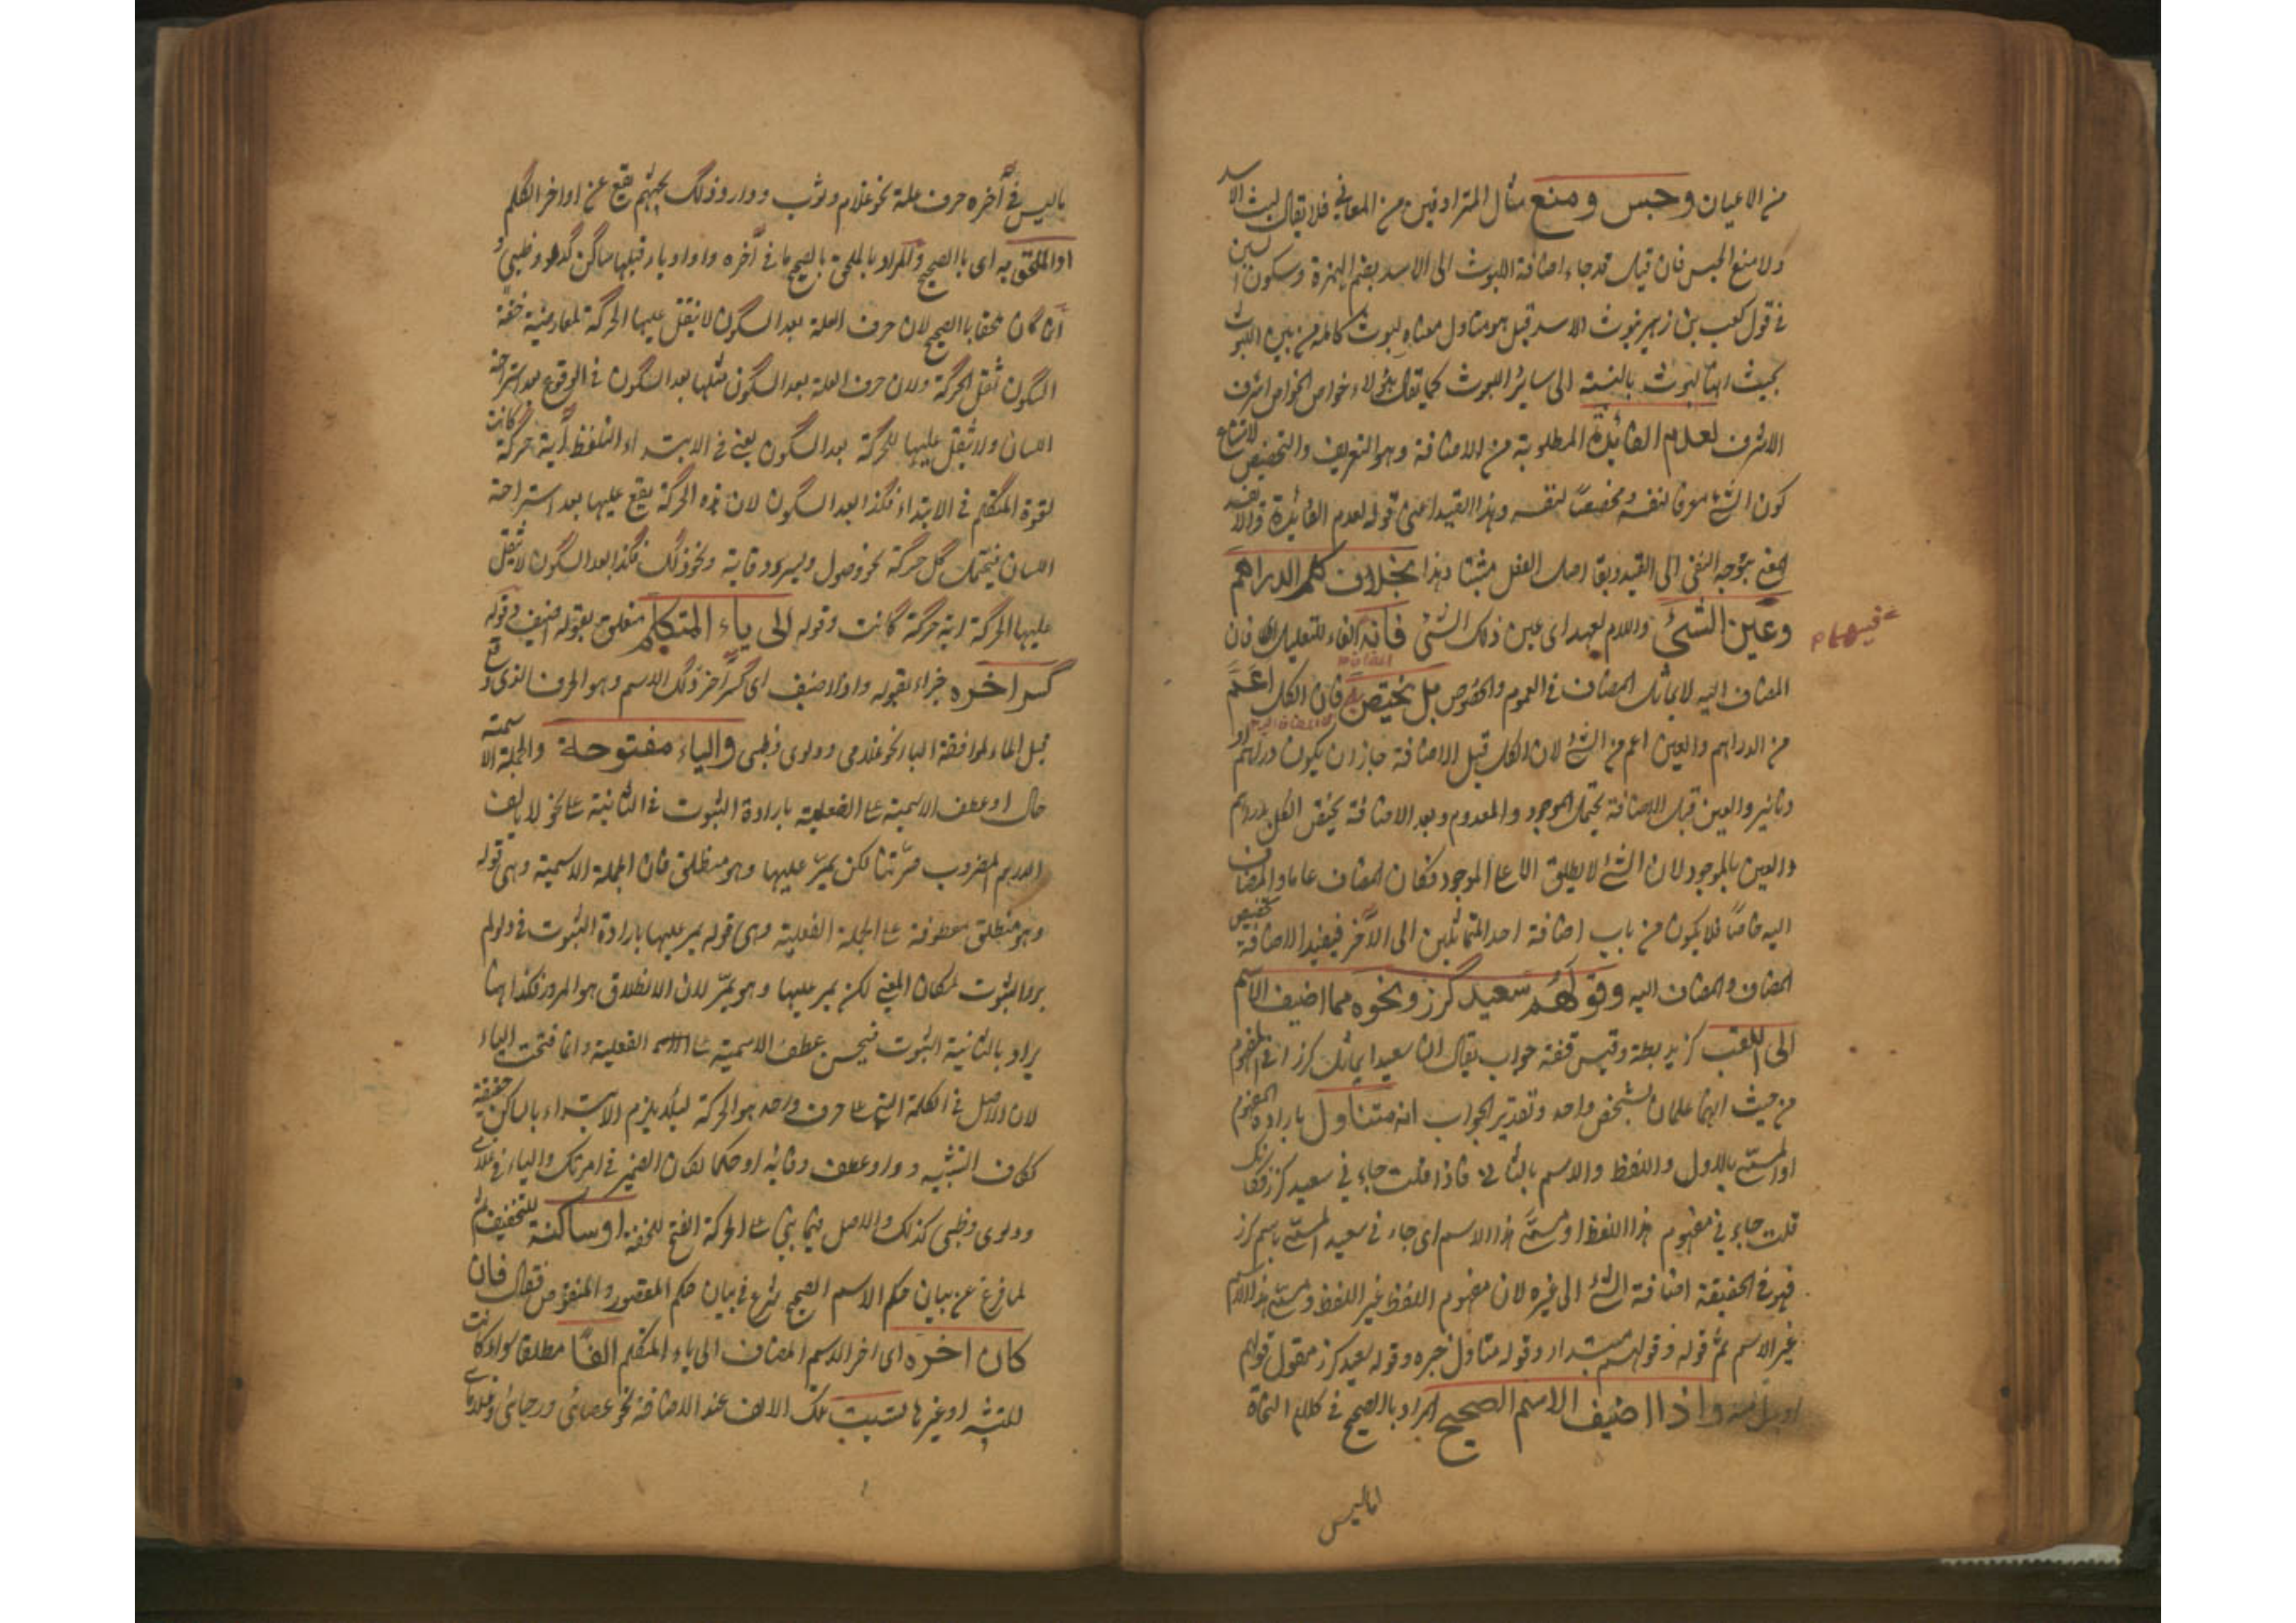 من الاعيان وحبس ومنع مثال المترادفين من المعاني فلا يقال ليث الاسد
ولا منع الحبس فان قيل قد جاء اضافة الليوث الى الاسد بضم الهمزة وسكون السين
في قول كعب بن زهير ليوث الاسد قيل هو متاول معناه ليوث كاملة من بين الليوث
بحيث انها ليوث بالنسبة الى سائر الليوث كما يقال هؤلاء خواص الخواص اشرف
الاشرف لعدم الفائدة المطلوبة من الاضافة وهو التعريف والتخصيص لامتناع
كون الشئ معرفا لنفسه ومخصصا لنفسه وهذا القيد اعنى قوله لعدم الفائدة والا
يتوجه النفى الى القيد وبقا اصل الفعل مثبتا وهذا بخلاف كل الدراهم
وعين الشئ واللام لعهد اى عين ذلك الشئ فانه الفاء للتعليل اى فان
المضاف اليه لا يماثل المضاف في العموم والخصوص بل يختص فان الكل اعم
من الدراهم والعين اعم من الشئ لان الكل قبل الاضافة جاز ان يكون دراهم او
دنانير والعين قبل الاضافة يحتمل الموجود والمعدوم وبعد الاضافة يختص الكل بدراهم
والعين بالموجود لان الشئ لا يطلق الا على الموجود فكان المضاف عاما والمضاف
اليه خاصا فلا يكون من باب اضافة احد المتماثلين الى الآخر فيفيد الاضافة تخصيص
المضاف والمضاف اليه وقولهم سعيد كرز ونحوه مما اضيف الاسم
الى اللقب كزيد بطة وقيس قفة جواب يقال ان سعيدا يماثل كرزا في المفهوم
من حيث انهما علمان لشخص واحد وتقدير الجواب انه متناول بارادة المفهوم
او المسمى بالاول واللفظ والاسم بالثاني فاذا قلت جاءني سعيد كرز فكانك
قلت جاءني مفهوم هذا اللفظ او مسمى هذا الاسم اى جاءني سعيد المسمى باسم كرز
فهو في الحقيقة اضافة الشئ الى غيره لان مفهوم اللفظ غير اللفظ ومسمى هذا الاسم
غير الاسم ثم قوله وقولهم مبتداء وقوله متاول خبره وقوله سعيد كرز مقول قولهم
واذا اضيف الاسم الصحيح المراد بالصحيح في كلام النحاة
ماليس
فيهما م
ماليس في آخره حرف علة نحو غلام وثوب ودار وذلك بحثهم يقع عن اواخر الكلم
او الملحق به اى بالصحيح والمراد بالملحق بالصحيح ما في آخره واو او ياء قبلها ساكن كدلو وظبي و
ان كان ملحقا بالصحيح لان حرف العلة بعد السكون لا يثقل عليها الحركة لمعارضة خفة
السكون ثقل الحركة ولان حرف العلة بعد السكون مثلها بعد السكون في الوقوع بعد استراحة
اللسان ولا يثقل عليها الحركة بعد السكون يعنى في الابتداء التلفظ أية حركة كانت
لقوة المتكلم في الابتداء فكذا بعد السكون لان هذه الحركة يقع عليها بعد استراحة
اللسان فيتحمل كل حركة نحو وصول ويسر ووقاية ونحو ذلك فكذا بعد السكون لا يثقل
عليها الحركة اية حركة كانت وقوله الى ياء المتكلم متعلق بقوله اضيف وقوله
كسر اخره جزاء لقوله واذا اضيف اى كسر آخر ذلك الاسم وهو الحرف الذى وقع
قبل الياء لموافقة الياء نحو غلامى ودلوى وظبى والياء مفتوحة والجملة الاسمية
حال او عطف الاسمية على الفعلية بارادة الثبوت في الثانية على نحو لا يألف
الدرهم المضروب صرتنا لكن يمر عليها وهو منطلق فان الجملة الاسمية وهى قوله
وهو منطلق معطوفة على الجملة الفعلية وهى قوله يمر عليها بارادة الثبوت في ولو لم
يرد الثبوت لمكان المعنى لكن يمر عليها وهو يمر لان الانطلاق هو المرور فكذا ههنا
يراد بالثانية الثبوت فيحسن عطف الاسمية على الفعلية وانما فتحت الياء
لان الاصل في الكلمة التى على حرف واحد هو الحركة ليلا يلزم الابتداء بالساكن حقيقة
ككاف التشبيه وواو عطف وفائه او حكما لكاف الضمير في امرتك والياء في غلامى
ودلوى وظبى كذلك والاصل فيما بنى على الحركة الفتح للخفة او ساكنة للتخفيف ثم
لما فرغ عن بيان حكم الاسم الصحيح شرع في بيان حكم المقصور والمنقوص فقال فان
كان اخره اى اخر الاسم المضاف الى ياء المتكلم الفا مطلقا سواء كانت
للتثنية او غيرها تثبت تلك الالف عند الاضافة نحو عصائ ورحائ وغلاماى